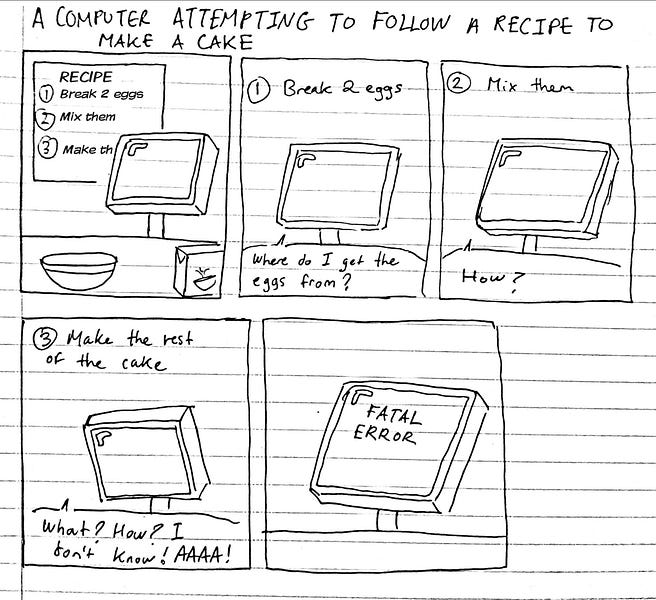 A COMPUTER ATTEMPTING TO FOLLOW A RECIPE TO
MAKE A CAKE
RECIPE
1 Break 2 eggs
2 Mix them
3 Make th
1 Break 2 eggs
Where do I get the
eggs from?
2 Mix them
How?
3 Make the rest
of the cake
What? How? I
don't know! AAAA!
FATAL
ERROR